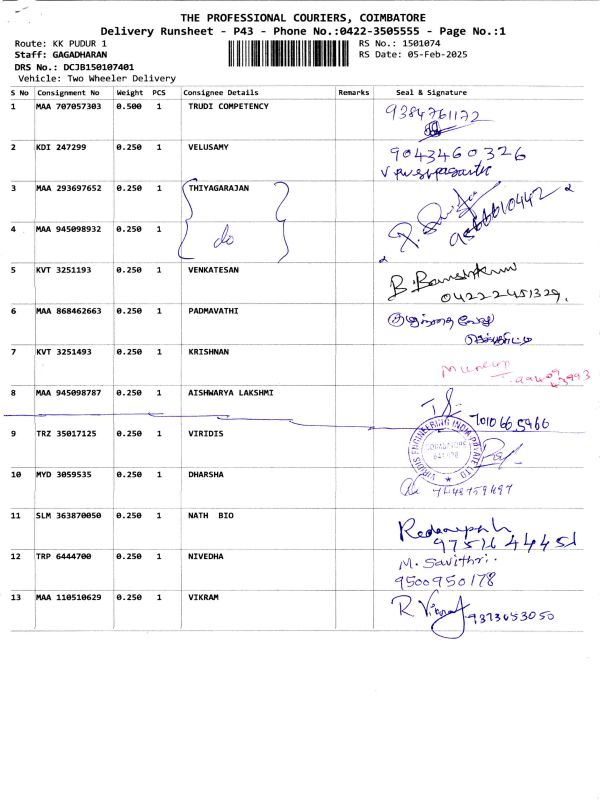 THE PROFESSIONAL COURIERS, COIMBATORE
Delivery Runsheet - P43 - Phone No.:0422-3505555 - Page No.:1
Route: KK PUDUR 1 RS No.: 1501074
Staff: GAGADHARAN RS Date: 05-Feb-2025
DRS No.: DCJB150107401
Vehicle: Two Wheeler Delivery
S No Consignment No Weight PCS Consignee Details Remarks Seal & Signature
1 MAA 707057303 0.500 1 TRUDI COMPETENCY 9384761172
2 KDI 247299 0.250 1 VELUSAMY 9043460326
3 MAA 293697652 0.250 1 THIYAGARAJAN
4 MAA 945098932 0.250 1 do
5 KVT 3251193 0.250 1 VENKATESAN
04222451329.
6 MAA 868462663 0.250 1 PADMAVATHI
7 KVT 3251493 0.250 1 KRISHNAN
8 MAA 945098787 0.250 1 AISHWARYA LAKSHMI
7010665966
9 TRZ 35017125 0.250 1 VIRIDIS VIRIDIS ENGINEERING INDIA PRIVATE LTD
10 MYD 3059535 0.250 1 DHARSHA
11 SLM 363870050 0.250 1 NATH BIO
9751644451
12 TRP 6444700 0.250 1 NIVEDHA M. Savithri.
9500950178
13 MAA 110510629 0.250 1 VIKRAM R Vikram 9373653050